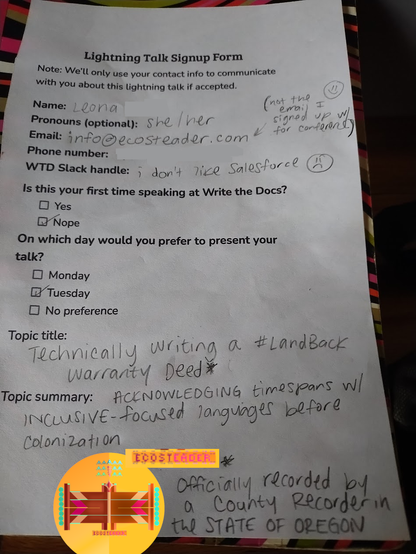 Lightning Talk Signup Form
Note: We'll only use your contact info to communicate
with you about this lightning talk if accepted.
Name: Leona
(not the
email I
signed up w/
for conference)
Pronouns (optional): she/her
Email: info@ecosteader.com
Phone number:
WTD Slack handle: i don't like Salesforce
Is this your first time speaking at Write the Docs?
Yes
Nope
On which day would you prefer to present your
talk?
Monday
Tuesday
No preference
Topic title:
Technically writing a #LandBack
Warranty Deed*
Topic summary: ACKNOWLEDGING timespans w/
INCLUSIVE-focused languages before
colonization
ECOSTEADER
* Officially recorded by
a County Recorder in
the STATE OF OREGON